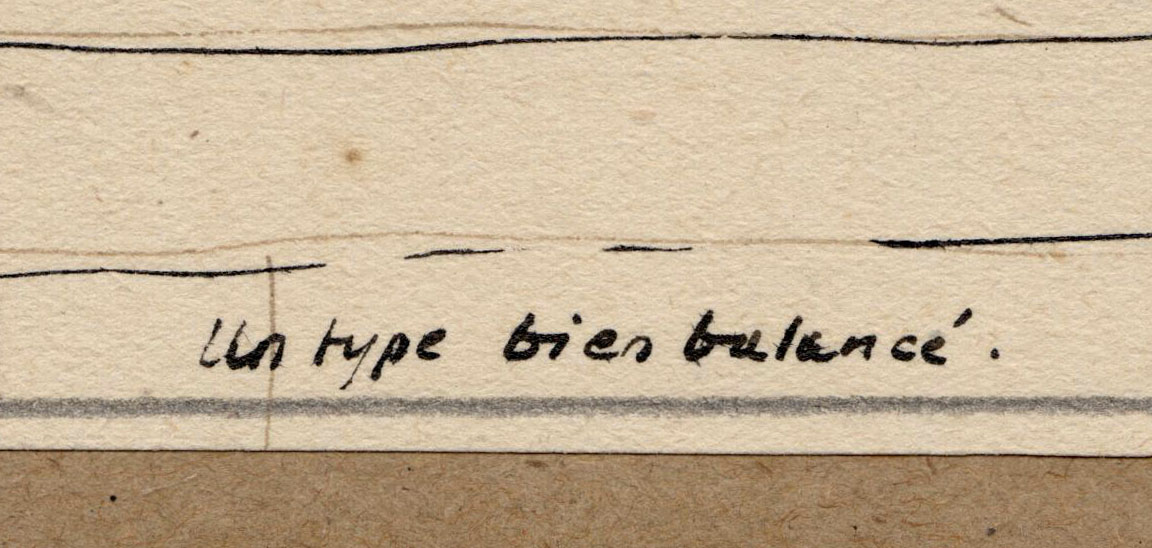 Un type bien balancé.